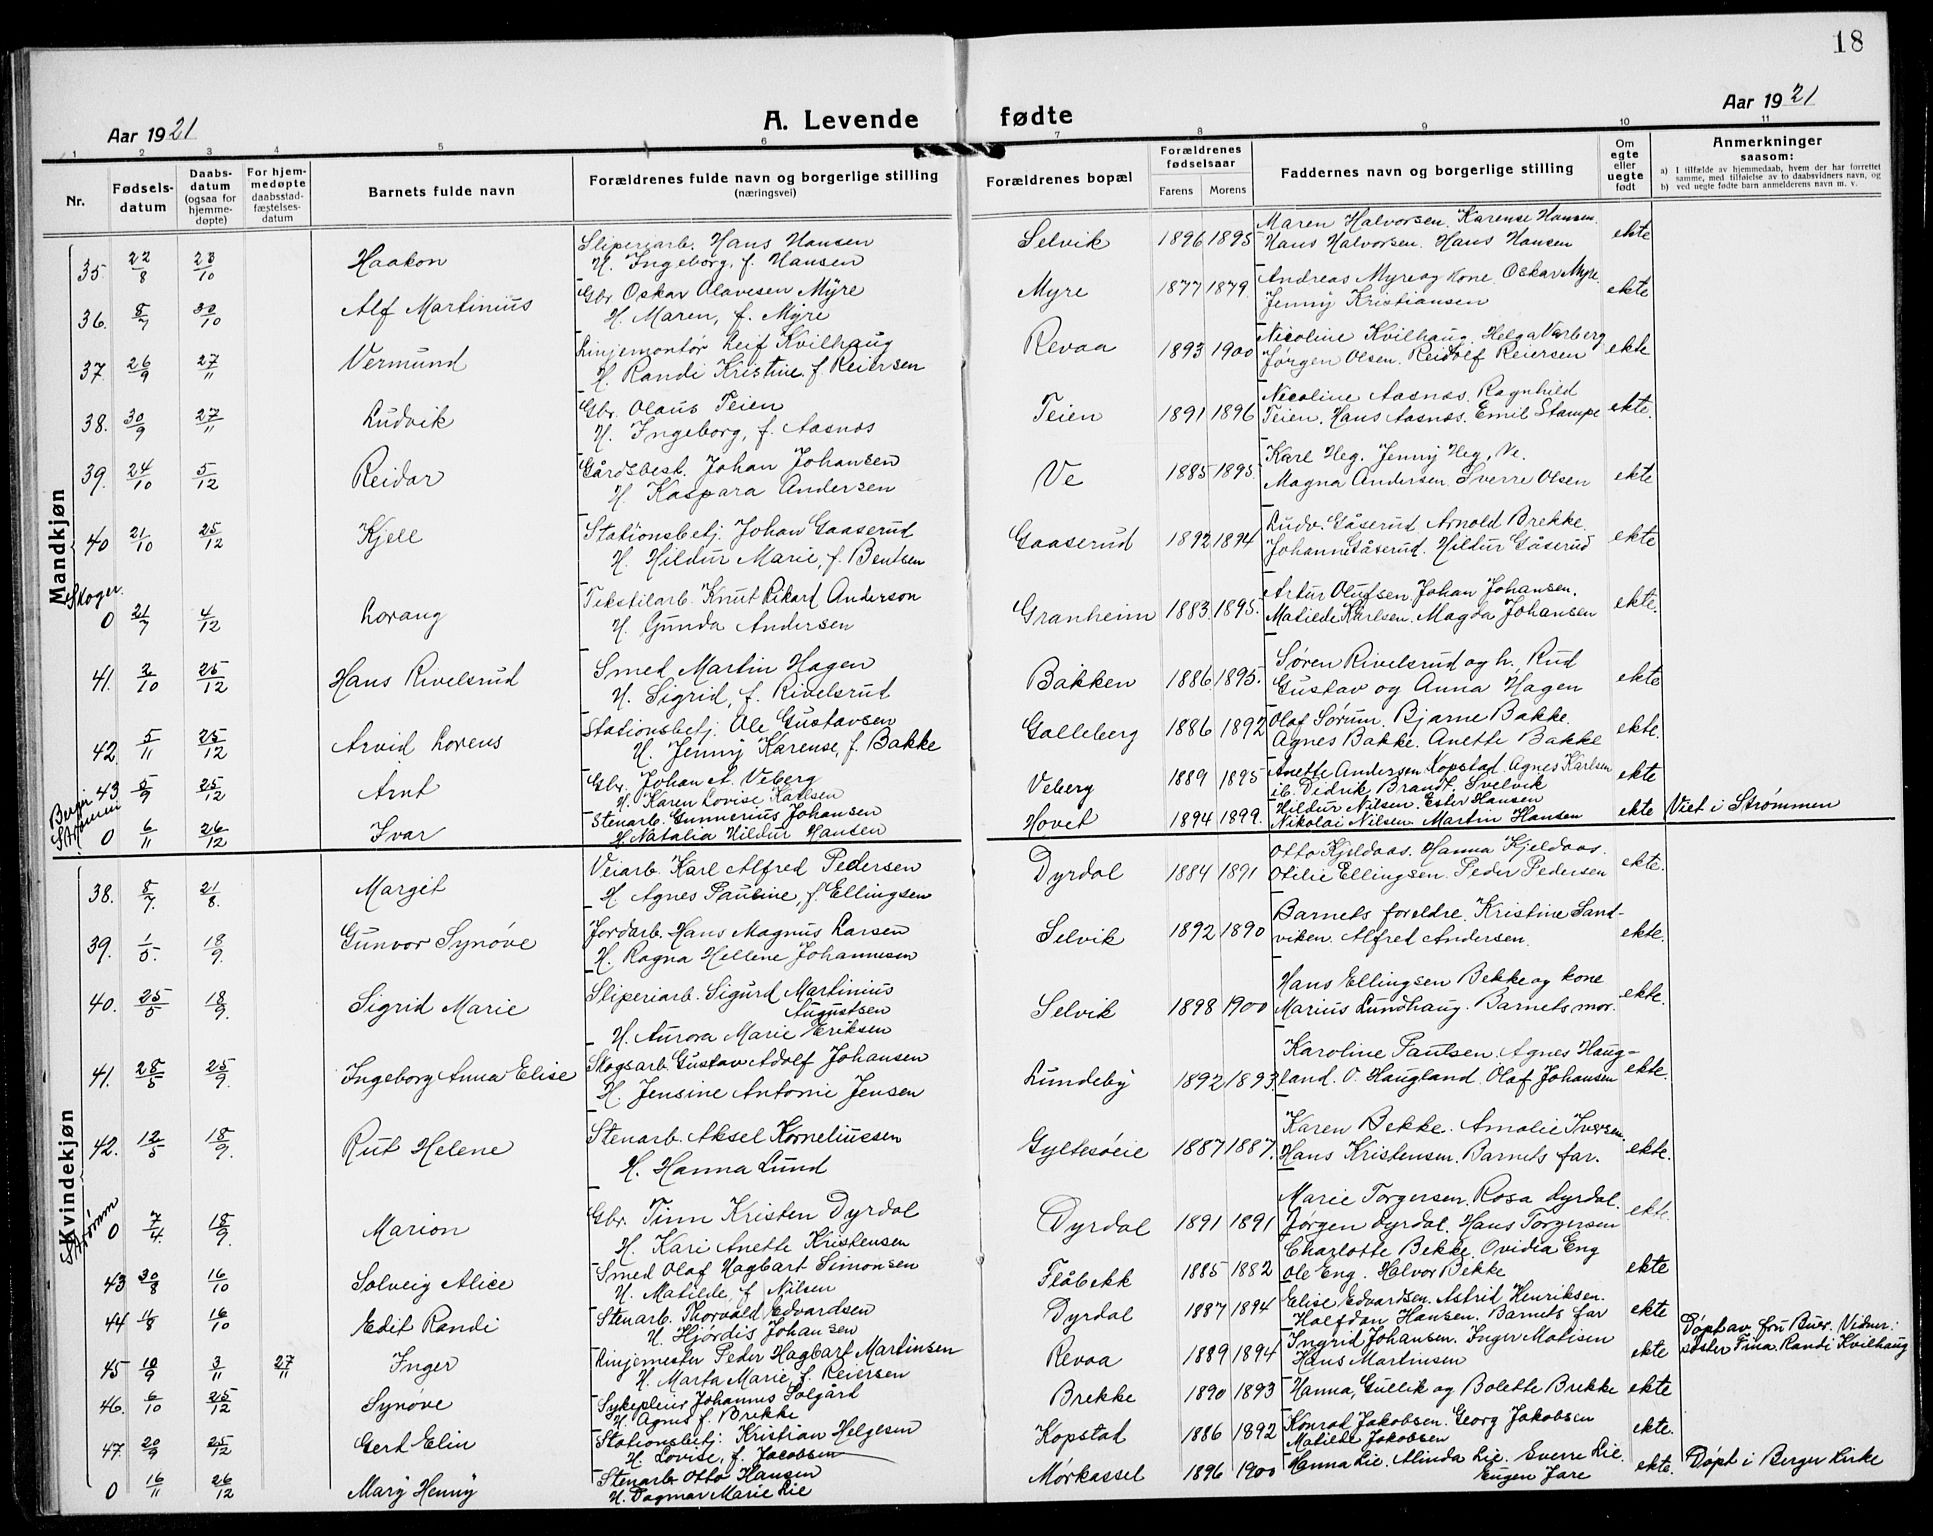 18
Aar 1921
A. Levende fødte
Aar 1921
1 2 3 4 5 6 7 8 9 10 11
Nr.
Fødsels-
datum
Daabs-
datum
(ogsaa for
hjemme-
døpte)
For hjem-
medøpte
daabsstad-
fæstelses-
datum
Barnets fulde navn
Forældrenes fulde navn og borgerlige stilling
(næringsvei)
Forældrenes bopæl
Forældrenes
fødselsaar
Farens Morens
Faddernes navn og borgerlige stilling
Om
egte
eller
uegte
født
Anmerkninger
saasom:
a) I tilfælde av hjemmedaab, hvem der har forrettet
samme, med tilføielse av to daabsvidners navn, og
b) ved uegte fødte barn anmelderens navn m. v.
Mandkjøn
35 22/8 23/10 Haakon Sliperiarb. Hans Hansen Selvik 1896 1895 Maren Halvorsen. Karense Hansen. ekte
H. Ingeborg, f. Hansen Hans Halvorsen. Hans Hansen
36. 8/7 30/10 Alf Martinius Gbr Oskar Olavesen Myre Myre 1877 1879. Andreas Myre og kone Oskar Myre. ekte
H. Maren, f. Myre Jenny Kristiansen
37. 26/9 27/11 Vermund Linjemontør Leif Kvilhaug Revaa 1893 1900 Nicoline Kvilhaug. Helga Varberg ekte
H. Randi Kristine f. Reiersen Jørgen Olsen. Reidolf Reiersen
38. 30/9 27/11 Ludvik Gbr. Olaus Teien Teien 1891 1896 Nicoline Aasnæs. Ragnhild ekte.
H. Ingeborg, f. Aasnæs Teien. Hans Aasnæs. Emil Stampe
39. 24/10 5/12 Reidar Gårdsbest. Johan Johansen Ve 1885 1895. Karl Heg. Jenny Heg, Ve. ekte
H. Kaspara Andersen Magna Andersen. Sverre Olsen
40 21/10 25/12 Kjell Stationsbetj. Johan Gaaserud Gaaserud 1892 1894 Ludv. Gåserud Arnold Brekke. ekte
H. Hildur Marie, f. Bentsen Johanne Gåserud. Hildur Gåserud
Skoger.
0 21/7 4/12 Lorang Tekstilarb. Knut Rikard Anderson Granheim 1883. 1895. Artur Olufsen. Johan Johansen. ekte.
H. Gunda Andersen Matilde Karlsen. Magda Johansen
41. 2/10 25/12 Hans Rivelsrud Smed Martin Hagen Bakken 1886 1895. Søren Rivelsrud og h. Rud ekte
H. Sigrid, f. Rivelsrut Gustav og Anna Hagen
42 5/11 25/12 Arvid Lorens Stationsbetj. Ole Gustavsen Galleberg 1886 1892 Olaf Sørum. Bjarne Bakke. ekte.
H. Jenny Karense, f. Bakke Agnes Bakke. Anette Bakke
43 5/9 25/12 Arnt Gbr. Johan A. Veberg Veberg 1889 1895 Anette Andersen Kopstad Agnes Karlsen ekte
H. Karen Lovise Karlsen ib. Didrik Brandt, Svelvik
Berger
Strømm
0 6/11 26/12 Ivar Stenarb. Gunnerius Johansen Hovet 1894 1899. Hildur Nilsen. Ester Hansen ekte Viet i Strømmen
H. Natalia Hildur Hansen Nikolai Nilsen. Martin Hansen
Kvindekjøn
38. 8/7. 21/8. Margit Veiarb. Karl Alfred Pedersen Dyrdal 1884 1891 Otto Kjeldaas. Hanna Kjeldaas. ekte.
H. Agnes Pauline, f. Ellingsen Otilie Ellingsen. Peder Pedersen
39. 1/5. 18/9. Gunvor Synøve Jordarb. Hans Magnus Larsen Selvik 1892 1890 Barnets foreldre. Kristine Sand- ekte.
H. Ragna Hellene Johannesen viken. Alfred Andersen.
40. 25/5 18/9. Sigrid Marie Sliperiarb. Sigurd Martinius Selvik 1898 1900 Hans Ellingsen Bekke og kone ekte.
Augustsen Marius Lundhaug. Barnets mor.
H. Aurora Marie Eriksen
41. 28/5 25/9. Ingeborg Anna Elise Skogsarb. Gustav Adolf Johansen Lundeby 1892 1893 Karoline Paulsen. Agnes Haug- ekte.
H. Jensine Antonie Jensen land. O. Haugland. Olaf Johansen
42. 12/5 18/9. Rut Helene Stenarb. Aksel Korneliussen Gyltesøeie 1887 1887. Karen Bekke. Amalie Iversen. ekte.
H. Hanna Lund Hans Kristensen. Barnets far.
Strømm
0 7/4 18/9. Marion Gbr. Tinn Kristen Dyrdal Dyrdal 1891 1891 Marie Torgersen. Rosa Dyrdal. ekte.
H. Kari Anette Kristensen Jørgen Dyrdal. Hans Torgersen
43 30/8 16/10 Solveig Alice Smed Olaf Hagbart Simonsen Flåbekk 1885 1882 Charlotte Bekke. Ovidia Eng ekte
H. Matilde, f. Nilsen Ole Eng. Halvor Bekke
44 11/8 16/10 Edit Randi Stenarb. Thorvald Edvardsen Dyrdal 1887 1894 Elise Edvardsen. Astrid Henriksen. ekte
H. Hjørdis Johansen Halfdan Hansen. Barnets far
45 10/9 3/11 27/11 Inger Linjemester Peder Hagbart Martinsen Revaa 1889 1894 Ingrid Johansen. Inger Matisen ekte Døpt av fru Buer. Vidner:
H. Marta Marie f. Reiersen Hans Martinsen søster Tina. Randi Kvilhaug
46. 6/10 25/12 Synøve Sykepleier Johannes Solgård Brekke 1890 1893 Hanna, Gullik og Bolette Brekke ekte
H. Agnes f. Brekke
47. 20/9 25/12 Gerd Elin Stationsbetj: Kristian Helgesen Kopstad 1886 1892 Konrad Jakobsen. Georg Jakobsen ekte.
H. Lovise, f. Jacobsen Matilde Jakobsen
0 16/11 26/12 Mary Henny Stenarb Otto Hansen Mørkassel 1896 1900 Hanna Lie. Alinda Lie. Sverre Lie. ekte. Døpt i Berger kirke
H. Dagmar Marie Lie Eugen Jare